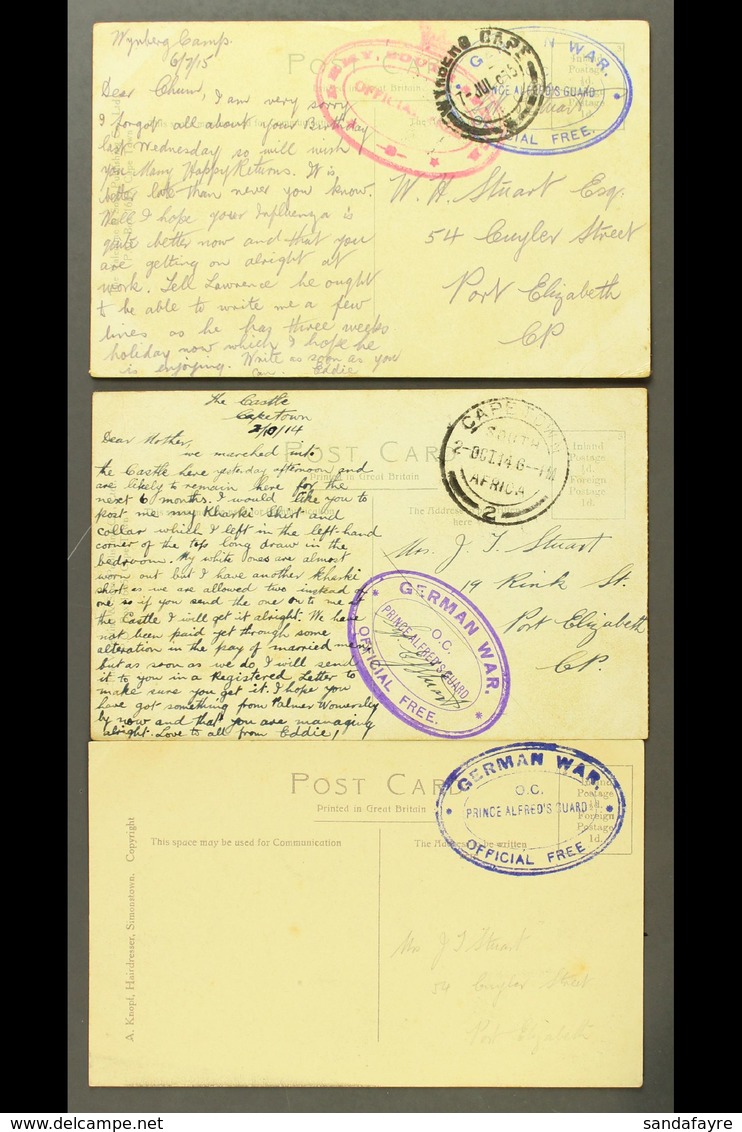 Wynberg Camp.
6/7/15
Dear Chum, I am very sorry
I forgot all about your Birthday
last Wednesday so will wish
you Many Happy Returns. It is
better late than never you know.
Well I hope your Influenza is
quite better now and that you
are getting on alright at
work. Tell Lawrence he ought
to be able to write me a few
lines as he has three weeks
holiday now which I hope he
is enjoying. Write as soon as you
can. Eddie
POST CARD
WYNBERG CAPE
OFFICIAL
WAR.
PRINCE ALFRED'S GUARD
OFFICIAL FREE.
Inland
Postage
W. H. Stuart Esq.
54 Cuyler Street
Port Elizabeth
CP
The Castle
Capetown
2/10/14
Dear Mother,
we marched into
the Castle here yesterday afternoon and
are likely to remain here for the
next 6 months. I would like you to
post me my Kharki shirt and
collar which I left in the left-hand
corner of the top long draw in the
bedroom. My white ones are almost
worn out but I have another kharki
shirt as we are allowed two instead of
one so if you send the one on to me at
the Castle I will get it alright. We have
not been paid yet through some
alteration in the pay of married men
but as soon as we do I will send
it to you in a Registered Letter to
make sure you get it. I hope you
have got something from Palmer
by now and that you are managing
alright. Love to all from Eddie!
POST CARD
Printed in Great Britain
The Address
here
CAPE TOWN
SOUTH
2-OCT 14 6-PM
AFRICA
2
Inland
Postage
1d.
Foreign
Postage
1d.
Mrs. J. T. Stuart
19 Rink St.
Port Elizabeth
CP.
GERMAN WAR.
O.C.
PRINCE ALFRED'S GUARD
OFFICIAL FREE.
POST CARD
Printed in Great Britain
This space may be used for Communication
The Address to be written
A. Knopf, Hairdresser, Simonstown. Copyright
GERMAN WAR.
O.C.
PRINCE ALFRED'S GUARD
OFFICIAL FREE.
Inland
Postage
1d.
Foreign
Postage
1d.
Mrs J T Stuart
54 Cuyler Street
Port Elizabeth
sandafayre